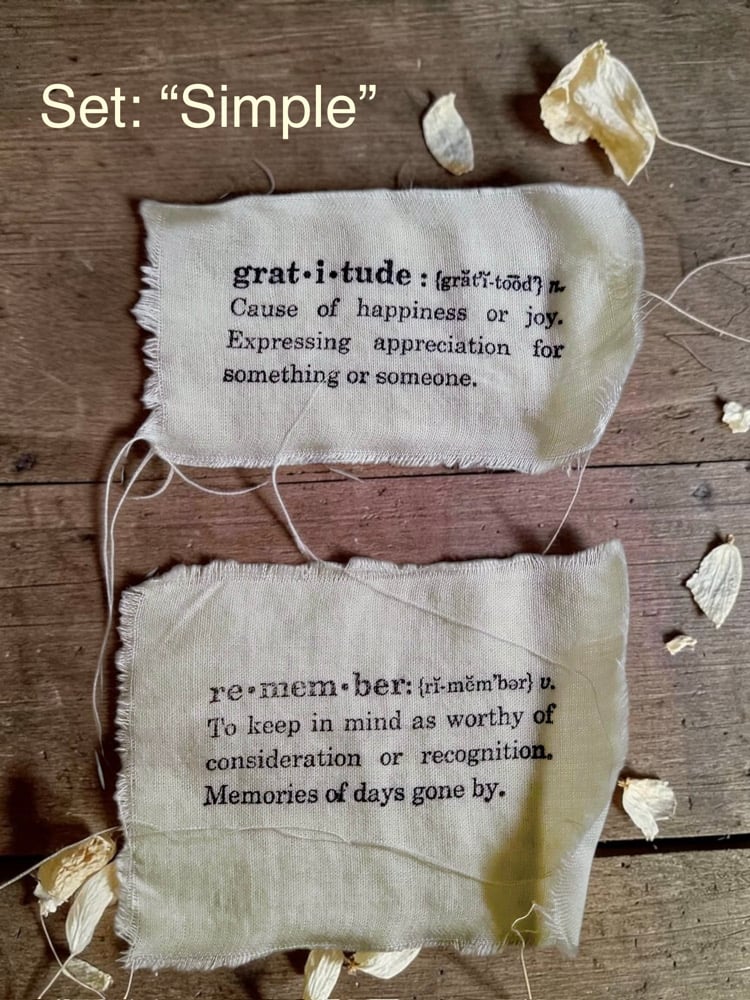 Set: “Simple”
grat•i•tude : {grăt'ĭ-to͞od'} n.
Cause of happiness or joy.
Expressing appreciation for
something or someone.
re•mem•ber: {rĭ-mĕm'bər} v.
To keep in mind as worthy of
consideration or recognition.
Memories of days gone by.